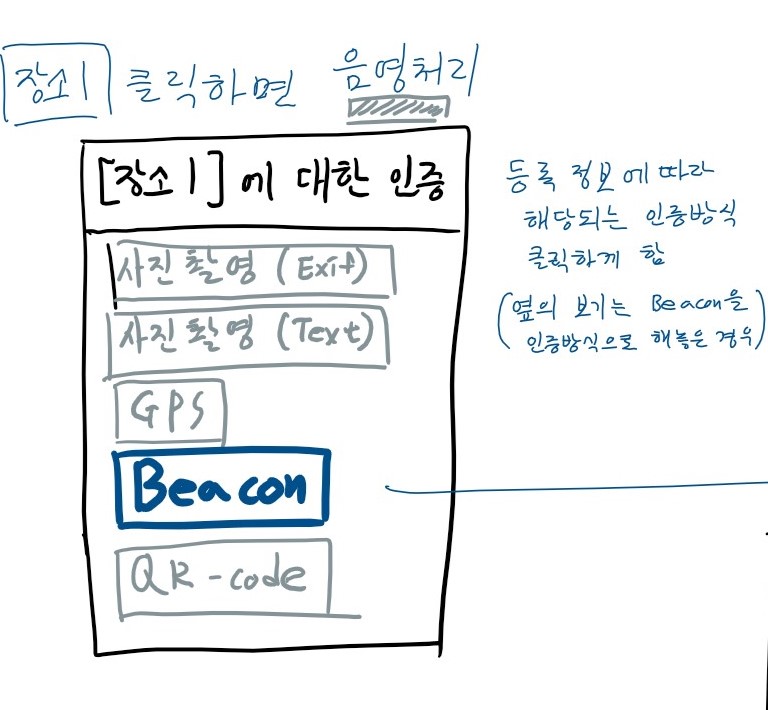 장소1 클릭하면 음영처리
[장소1]에 대한 인증
사진촬영 (Exif)
사진촬영 (Text)
GPS
Beacon
QR-code
등록 정보에 따라
해당되는 인증방식
클릭하게 함
(옆의 보기는 Beacon을
인증방식으로 해놓은 경우)